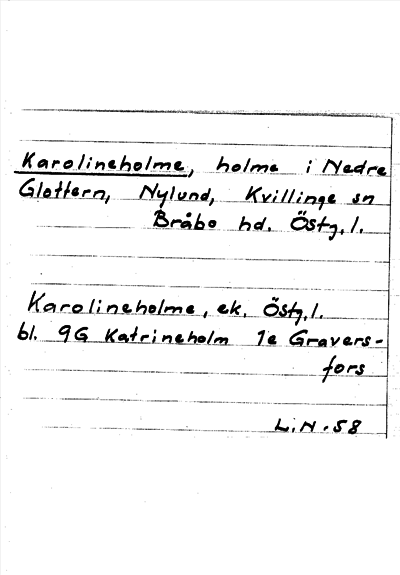 Karolineholme, holme i Nedre
Glottern, Nylund, Kvillinge sn
Bråbo hd. Östg.l.
Karolineholme, ek. Östg.l.
bl. 9G Katrineholm 1e Gravers-
fors
L.N.58